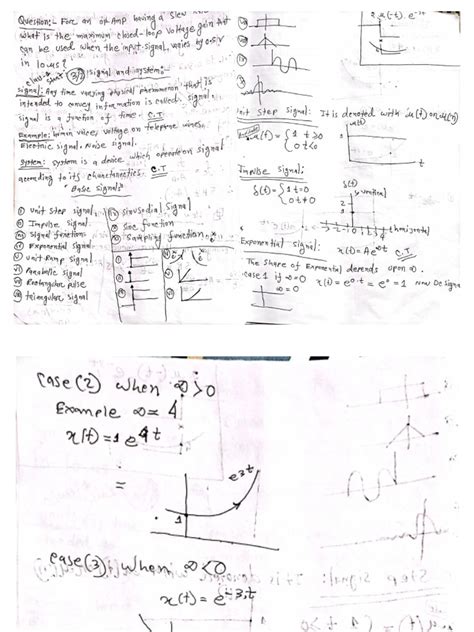 Question:- For an op Amp having a slew
what is the maximum closed-loop voltage gain that
can be used when the input signal varies by 0.5 V
in 10 us?
(3/2) Signal and system:
Signal: Any time varying physical phenomenon that is
intended to convey information is called signal.
signal is a function of time. C.T
Example: human voice, voltage on telephone wires.
Electric signal, Noise signal.
System: system is a device which operate on signal
according to its characteristics. C.T
"Basic signal"
① unit step signal
② Impulse signal
③ Signal function
④ Exponential signal
⑤ unit Ramp signal
⑥ Parabolic signal
⑦ Rectangular pulse
⑧ triangular signal
sinusoidal signal
Sinc function
Sampling function
Step signal: It is denoted with u(t) on u(n)
u(t) = { 1 t≥0
0 t<0
u(t)
Impulse signal:
δ(t) = { 1 t=0
0 t≠0
δ(t)
vertical
Exponential signal: x(t) = A e^∞t C.T
The shape of Exponential depends upon ∞.
case 1 if ∞=0 x(t) = e^0.t = e^0 = 1 now Dc signal
∞=0
Case (2) when ∞>0
Example ∞= 4
x(t) = 1 e^4t
=
e^3t
1
case (3) when ∞<0
x(t) = e^-3.t